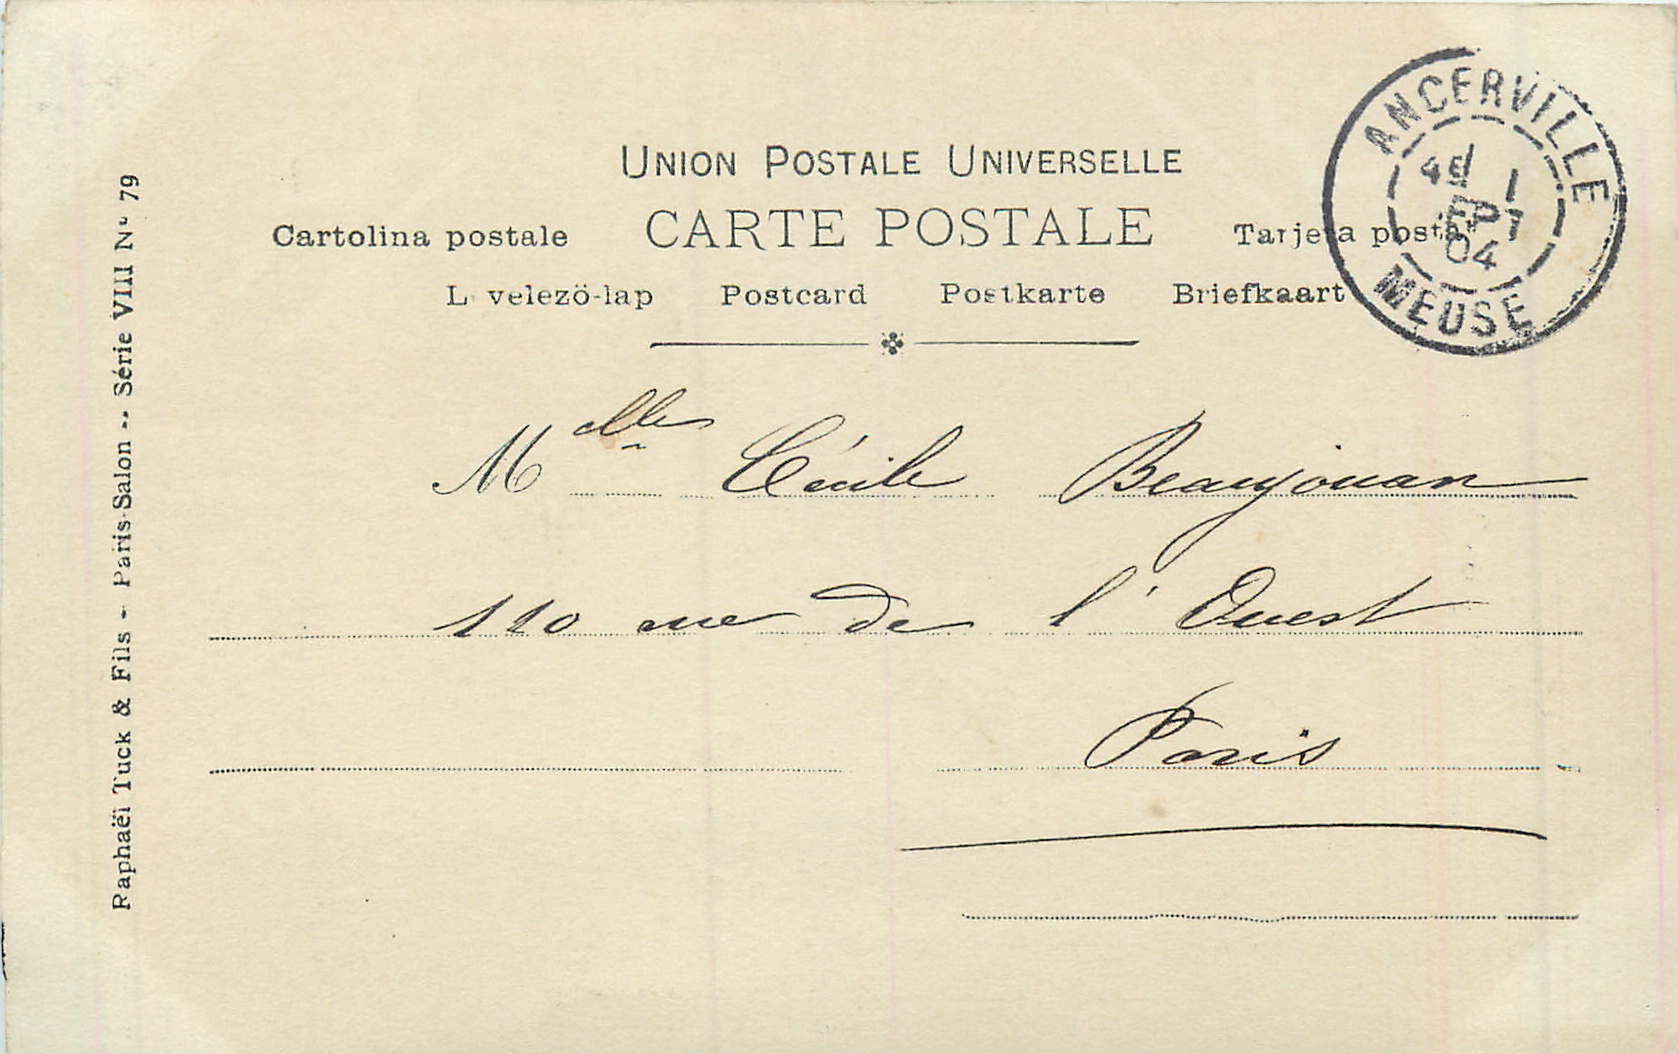 UNION POSTALE UNIVERSELLE
Cartolina postale CARTE POSTALE Tarjeta postal
L velezö-lap Postcard Postkarte Briefkaart
ANCERVILLE
04
MEUSE
Melle Cécile Beaujouan
110 rue de l'Ouest
Paris
Raphaël Tuck & Fils - Paris-Salon -- Série VIII No 79